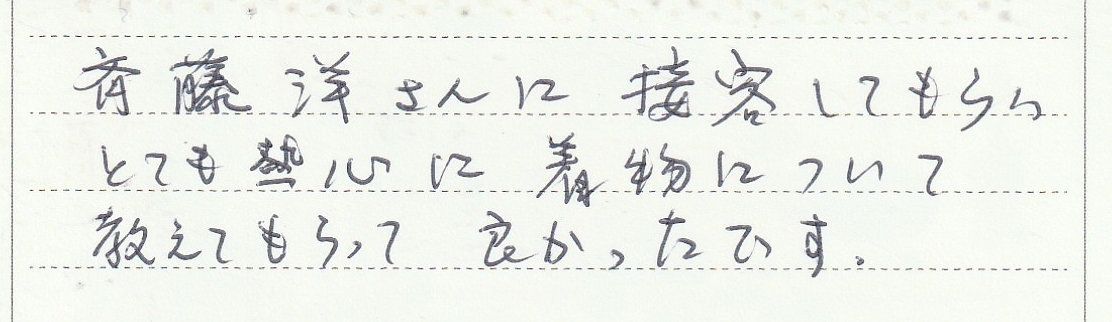 斉藤 洋さんに 接客してもらい
とても熱心に 着物について
教えてもらって 良かったです。